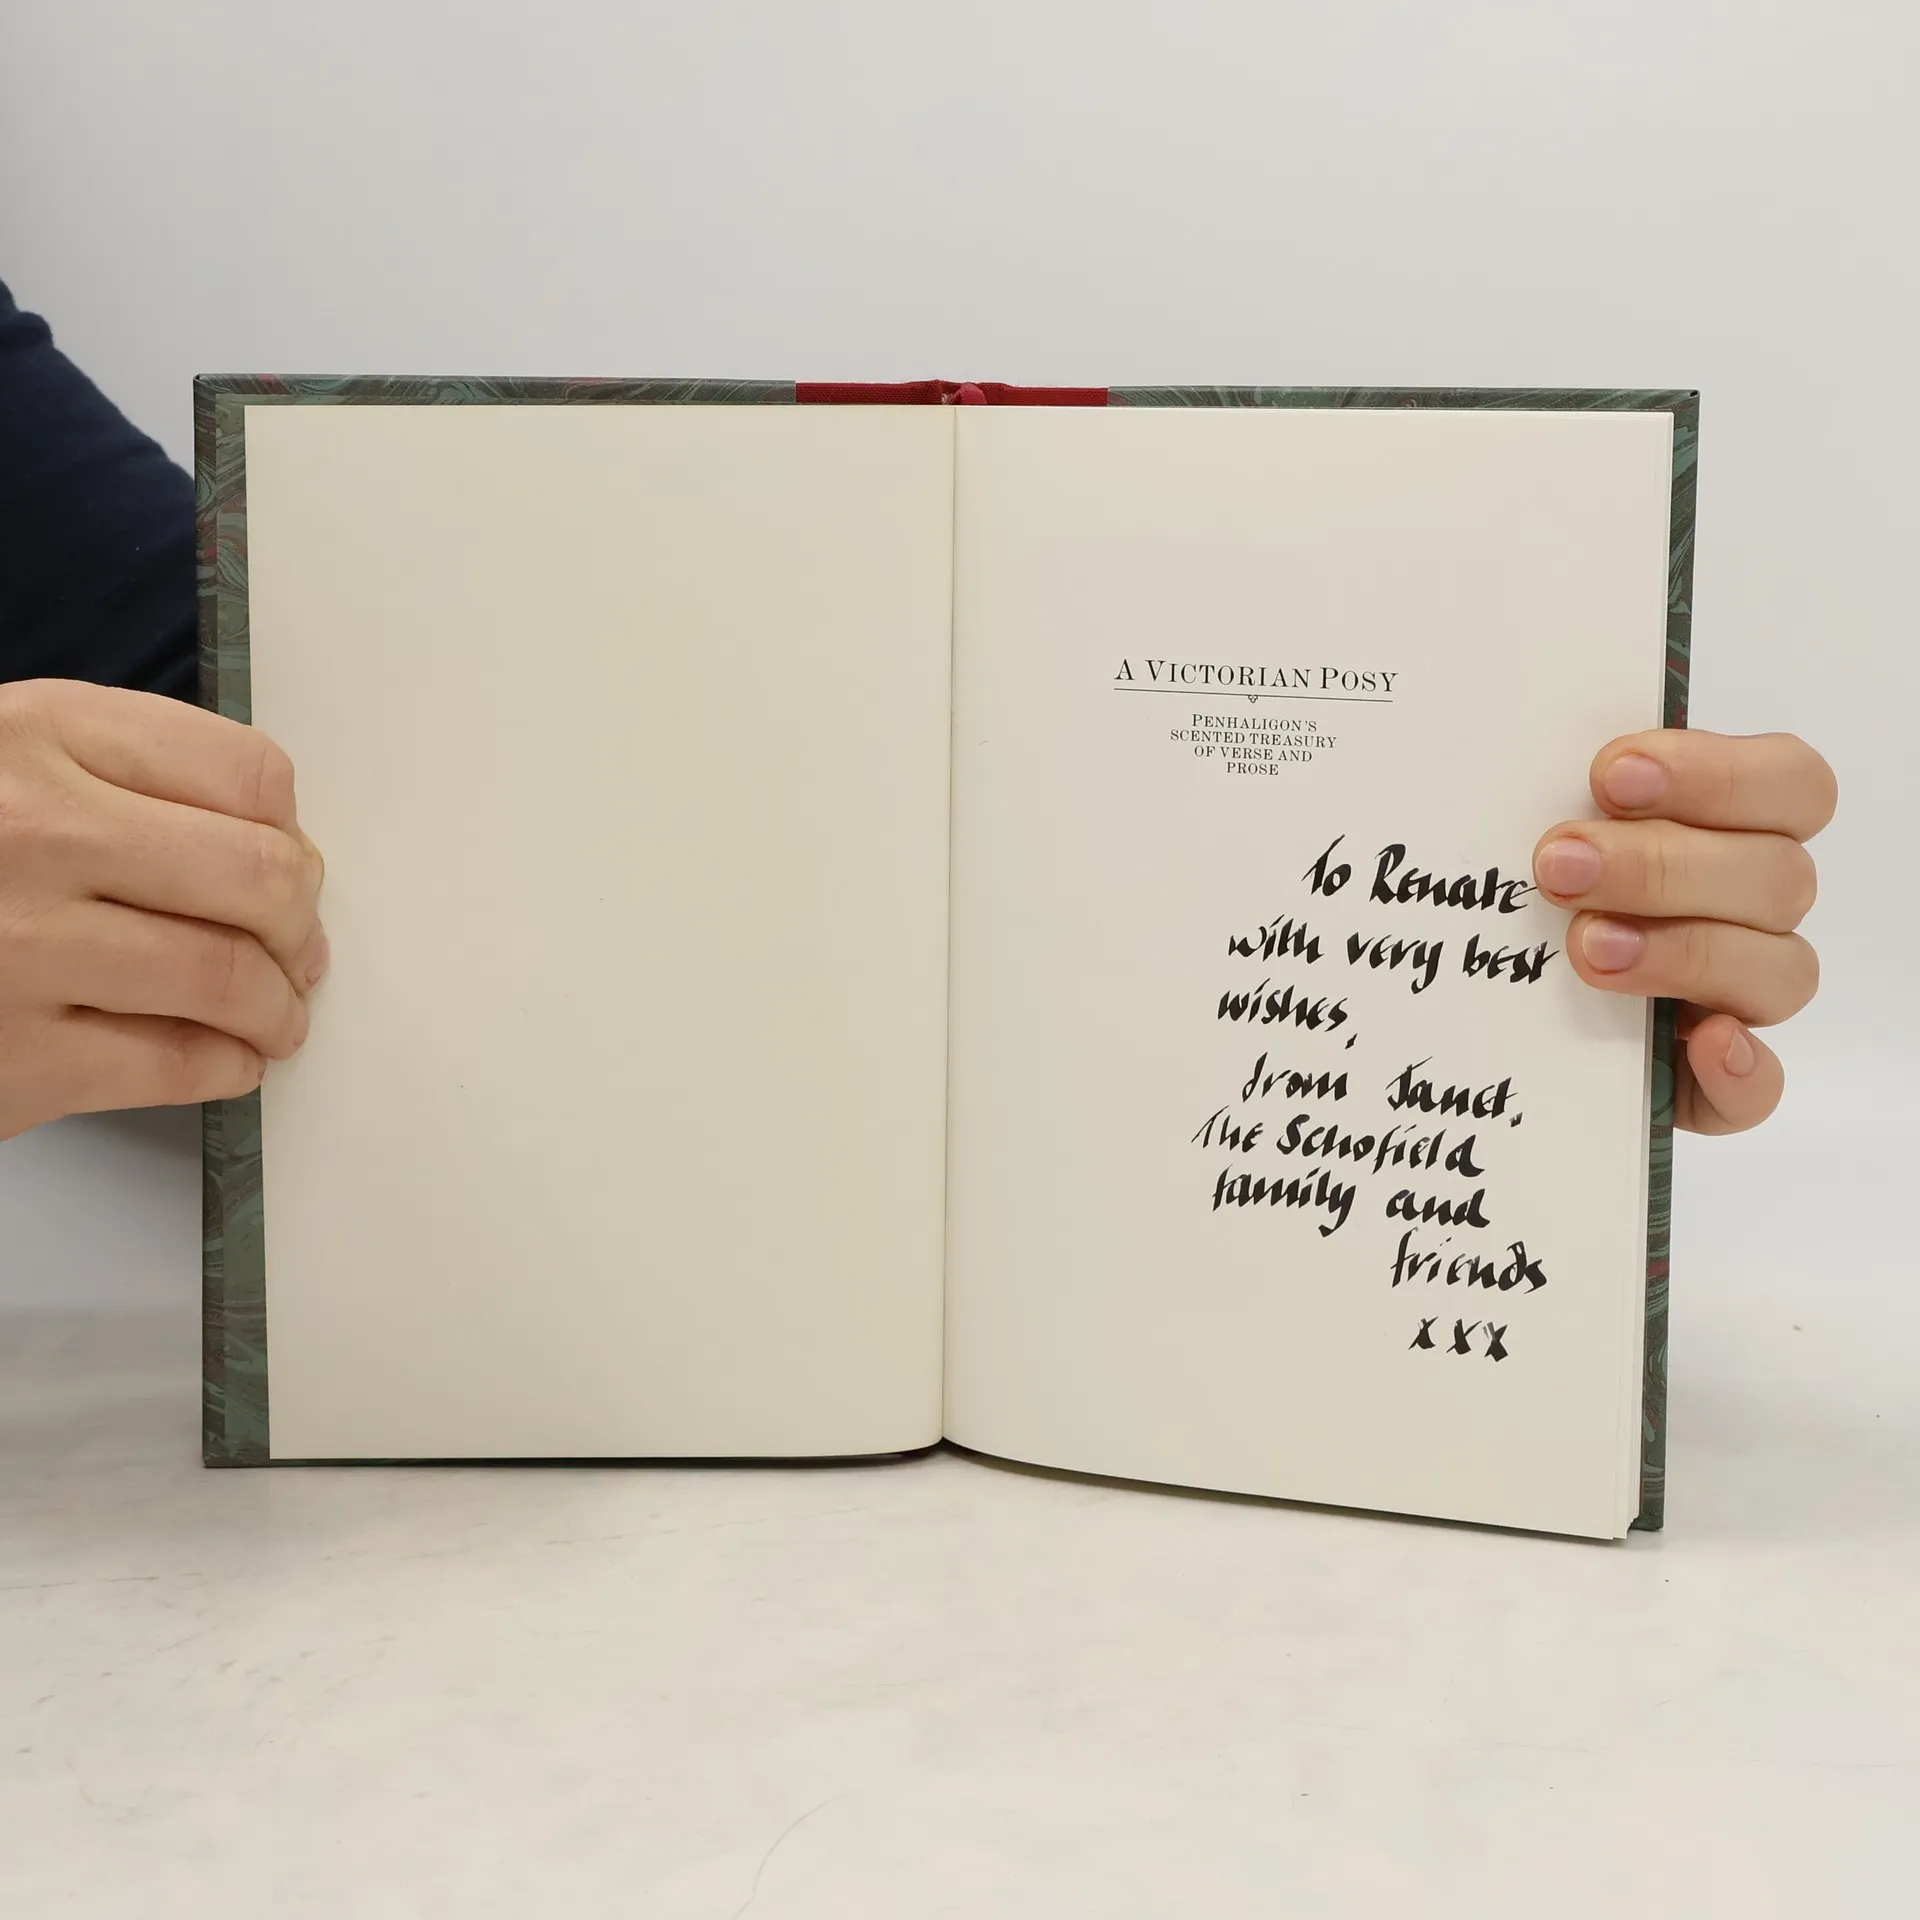 A VICTORIAN POSY
PENHALIGON'S
SCENTED TREASURY
OF VERSE AND
PROSE
To Renate
with very best
wishes,
from Janet,
The Schofield
family and
friends
xxx